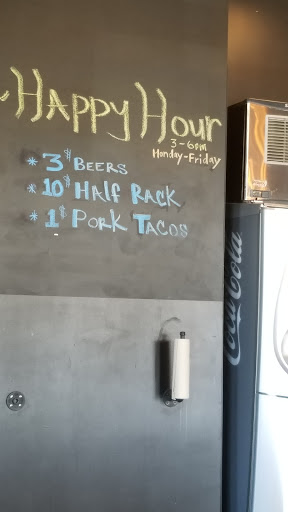 Happy Hour
3-6pm
Monday-Friday
* 3$ Beers
* 10$ Half Rack
* 1$ Pork Tacos
Coca-Cola